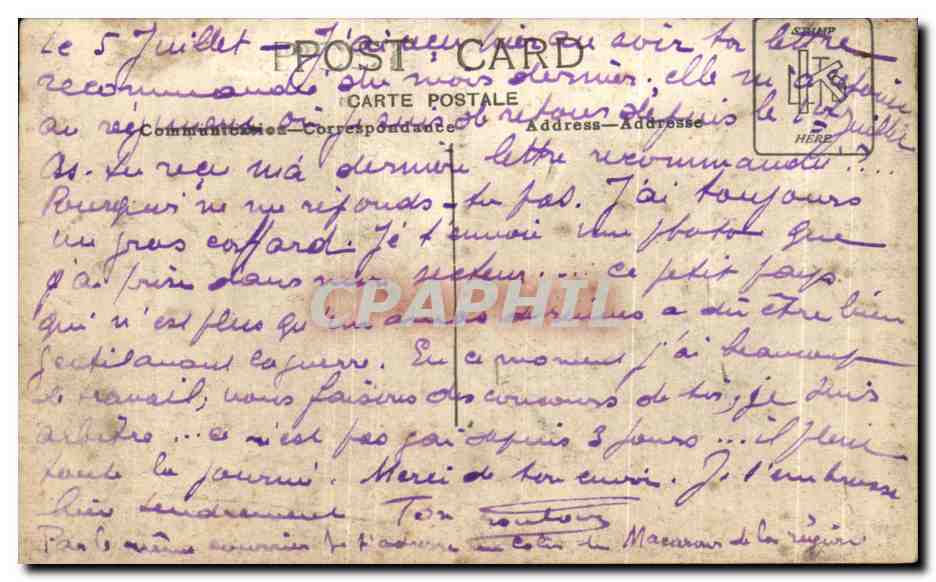 Le 5 Juillet - J'ai reçu hier au soir ta lettre
POST CARD
STAMP
recommandée du mois dernier, elle m'a
CARTE POSTALE
au régiment où je suis de repos depuis le 1er Juillet
Communication—Correspondance
Address—Addresse
HERE
As-tu reçu ma dernière lettre recommandée ?....
Pourquoi ne me réponds-tu pas. J'ai toujours
un gros caffard. Je t'envoie une photo que
j'ai prise dans mon secteur.... ce petit pays
CPAPHIL
qui n'est plus qu'un amas de ruines a dû être bien
gentil avant la guerre. En ce moment j'ai beaucoup
de travail, nous faisons des concours de tir, je suis
arbitre ... ce n'est pas gai depuis 3 jours ... il pleut
toute la journée. Merci de ton envoi. Je t'embrasse
bien tendrement Ton
Par le même courrier je t'adresse un colis de Macarons de la région